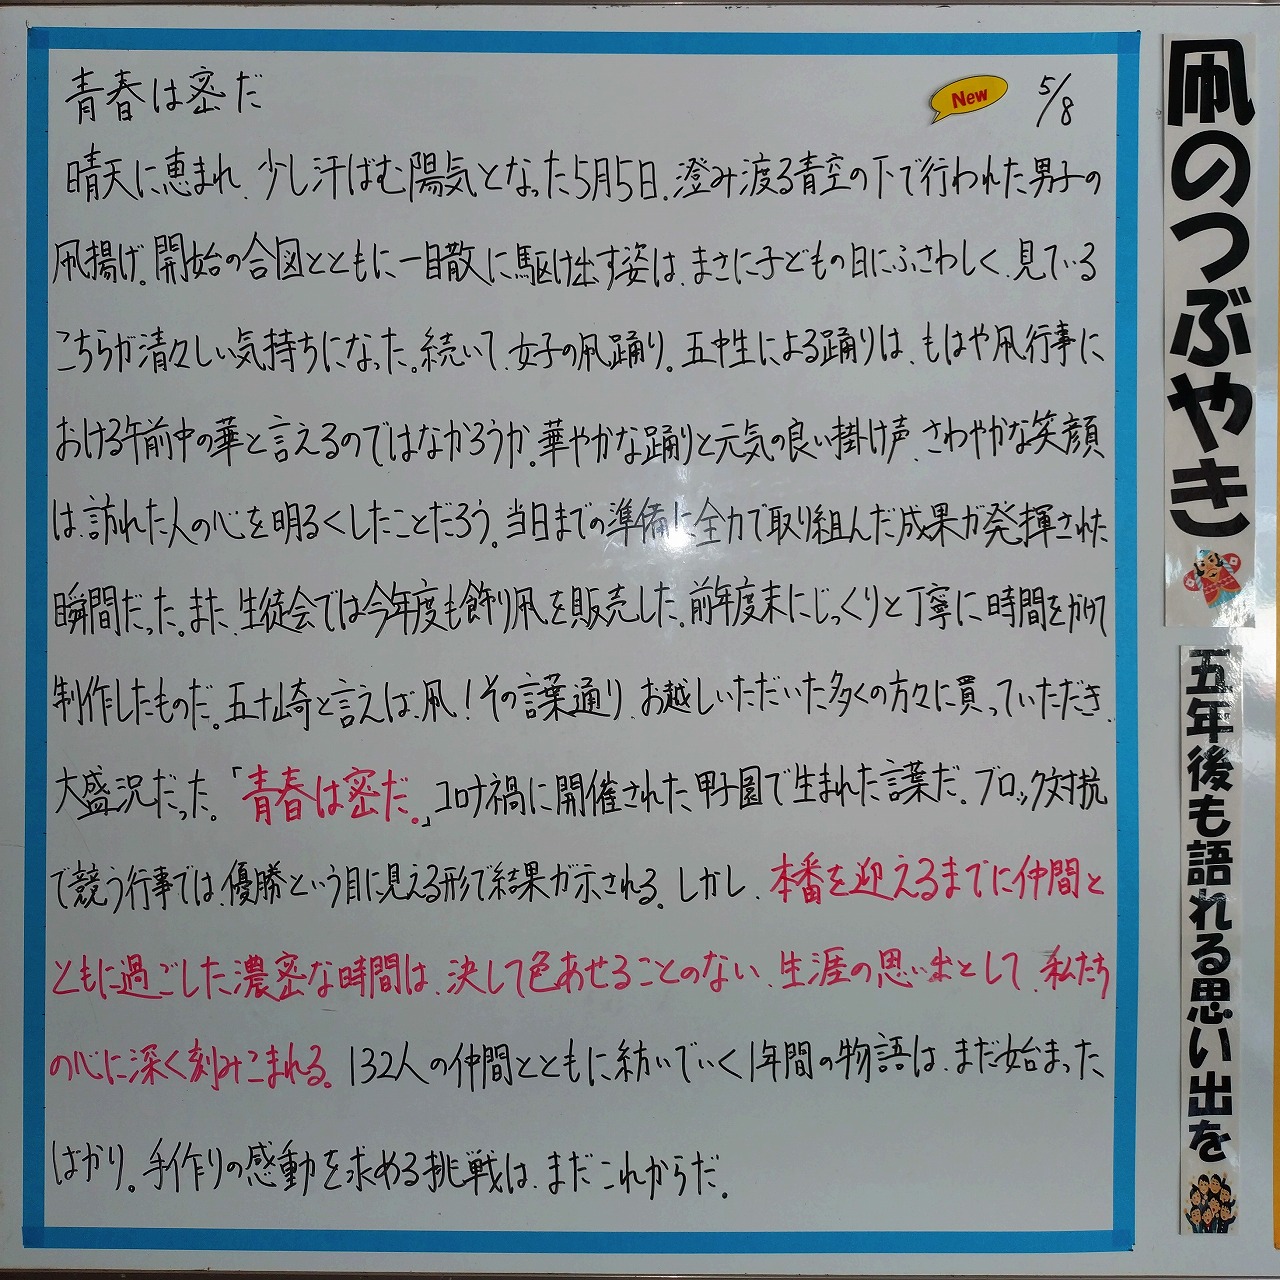 青春は密だ
New
5/8
晴天に恵まれ、少し汗ばむ陽気となった5月5日、澄み渡る青空の下で行われた男子の
凧揚げ。開始の合図とともに一目散に駆け出す姿は、まさに子どもの日にふさわしく、見ている
こちらが清々しい気持ちになった。続いて、女子の凧踊り。五中生による踊りは、もはや凧行事に
おける午前中の華と言えるのではなかろうか。華やかな踊りと元気の良い掛け声、さわやかな笑顔
は、訪れた人の心を明るくしたことだろう。当日までの準備に全力で取り組んだ成果が発揮された
瞬間だった。また、生徒会では今年度も飾り凧を販売した。前年度末にじっくりと丁寧に時間をかけて
制作したものだ。五十崎と言えば、凧！その言葉通り、お越しいただいた多くの方々に買っていただき、
大盛況だった。「青春は密だ。」コロナ禍に開催された甲子園で生まれた言葉だ。ブロック対抗
で競う行事では、優勝という目に見える形で結果が示される。しかし、本番を迎えるまでに仲間と
ともに過ごした濃密な時間は、決して色あせることのない、生涯の思い出として、私たち
の心に深く刻みこまれる。132人の仲間とともに紡いでいく1年間の物語は、まだ始まった
ばかり。手作りの感動を求める挑戦は、まだこれからだ。
凧のつぶやき
五年後も語れる思い出を